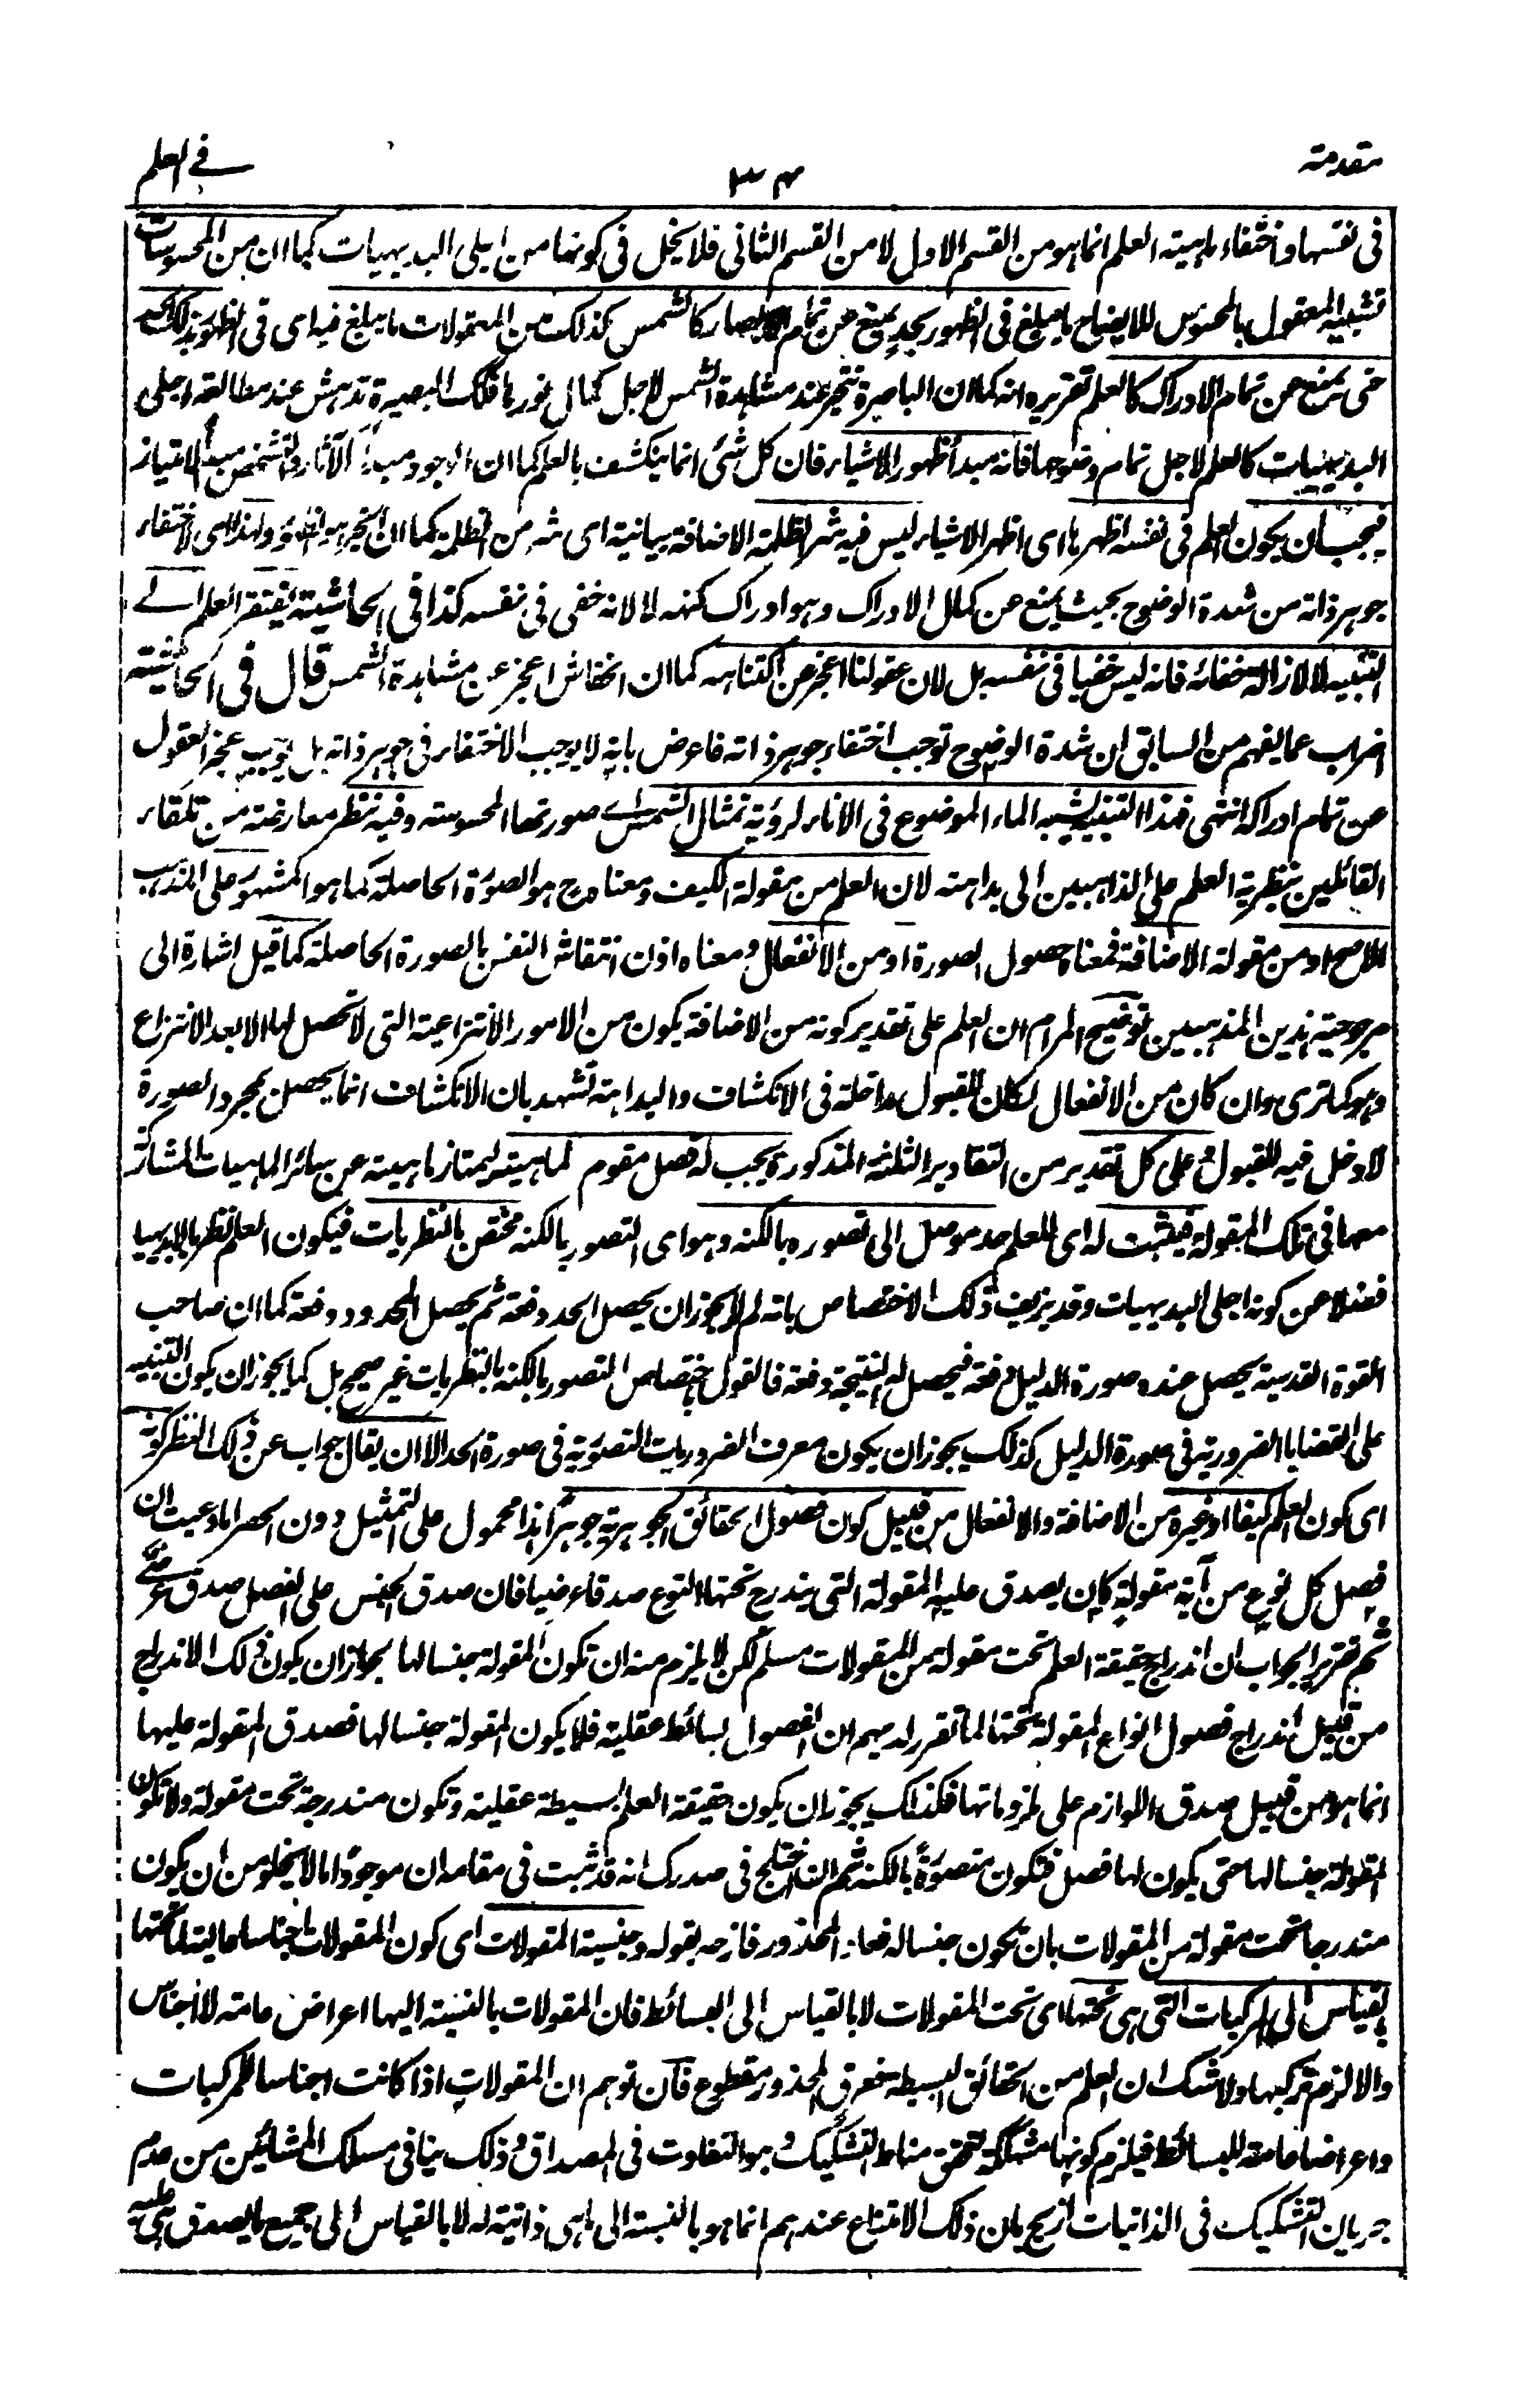 مقدمة
٣٤
في العلم
فى نفسها واختفاء ماهية العلم انما هو من القسم الاول لا من القسم الثانى فلا يخل فى كونها من اجلى البديهيات كما ان من المحسوسات
تشبيه المعقول بالمحسوس للايضاح ما يبلغ فى الظهور بحد يمنع عن تمام الابصار كالشمس كذلك من المعقولات ما يبلغ فيه اى فى الظهور بذلك الحد
حتى يمنع عن تمام الادراك كالعلم تقريره انه كما ان الباصرة تتحير عند مشاهدة الشمس لاجل كمال نورها فكذلك البصيرة تدهش عند مطالعة اجلى
البديهيات كالعلم لاجل تمام وضوحها فانه مبدأ ظهور الاشياء فان كل شئ انما ينكشف بالعلم كما ان الوجود مبدأ الآثار والتشخص مبدأ الامتياز
فيجب ان يكون العلم فى نفسه اظهرها اى اظهر الاشياء ليس فيه شر الظلمة الاضافة بيانية اى شر من الظلمة كما ان الخير هو الضوء ولهذا اى لاختفاء
جوهر ذاته من شدة الوضوح بحيث يمنع عن كمال الادراك وهو ادراك كنهه لا لانه خفى فى نفسه كذا فى الحاشية يفتقر العلم الے
التنبيه لا لازالة خفائه فانه ليس خفيا فى نفسه بل لان عقولنا اعجز عن اكتناهه كما ان الخفاش اعجز عن مشاهدة الشمس قال فى الحاشية
اضراب عما يفهم من السابق ان شدة الوضوح توجب اختفاء جوهر ذاته فاعرض بانه لا يوجب الاختفاء فى جوهر ذاته بل يوجب عجز العقول
عن تمام ادراكه انتهى فهذا التنبيه يشبه الماء الموضوع فى الاناء لرؤية تمثال الشمس اے صورتها المحسوسة وفيه نظر معارضة من تلقاء
القائلين بنظرية العلم على الذاهبين الى بداهته لان العلم من مقولة الكيف ومعناه ح هو الصورة الحاصلة كما هو المشهور على المذهب
الاصح او من مقولة الاضافة فمعناه حصول الصورة او من الانفعال ومعناه اذن انتقاش النفس بالصورة الحاصلة كما قيل اشارة الى
مرجوحية هذين المذهبين توضيح المرام ان العلم على تقدير كونه من الاضافة يكون من الامور الانتزاعية التى لا تحصل لها الا بعد الانتزاع
وهو كما ترى وان كان من الانفعال لكان للقبول مداخلة فى الانكشاف والبداهة تشهد بان الانكشاف انما يحصل بمجرد الصورة
لا دخل فيه للقبول وعلى كل تقدير من التقادير الثلثة المذكورة يجب له فصل مقوم لماهيته ليمتاز ماهيته عن سائر الماهيات المشاركة
معها فى تلك المقولة فيثبت له اى للعلم حد موصل الى تصوره بالكنه وهو اى التصور بالكنه مختص بالنظريات فيكون العلم نظريا لا بديهيا
فضلا عن كونه اجلى البديهيات وقد يزيف ذلك الاختصاص بانه لم لا يجوز ان يحصل الحد دفعة ثم يحصل المحدود دفعة كما ان صاحب
القوة القدسية يحصل عنده صورة الدليل دفعة فيحصل له النتيجة دفعة فالقول باختصاص التصور بالكنه بالنظريات غير صحيح بل كما يجوز ان يكون التنبيه
على القضايا الضرورية فى صورة الدليل كذلك يجوز ان يكون معرف الضروريات التصورية فى صورة الحد الا ان يقال جواب عن ذلك النظر كونه
اى كون العلم كيفا او غيره من الاضافة والانفعال من قبيل كون فصول الحقائق الجوهرية جوهرا هذا محمول على التمثيل دون الحصر لما دعيت ان
فصل كل نوع من اية مقولة كان يصدق عليه المقولة التى يندرج تحتها النوع صدقا عرضيا فان صدق الجنس على الفصل صدق عرضے
ثم تقرير الجواب ان اندراج حقيقة العلم تحت مقولة من المقولات مسلم لكن لا يلزم منه ان تكون المقولة جنسا لها بجواز ان يكون ذلك الاندراج
من قبيل اندراج فصول انواع المقولة تحتها لما تقرر لديهم ان الفصول بسائط عقلية فلا يكون المقولة جنسا لها فصدق المقولة عليها
انما هو من قبيل صدق اللوازم على ملزوماتها فكذلك يجوز ان يكون حقيقة العلم بسيطة عقلية وتكون مندرجة تحت مقولة ولا تكون
المقولة جنسا لها حتى يكون لها فصل فتكون متصورة بالكنه ثم ان اختلج فى صدرك انه قد ثبت فى مقامه ان موجودا ما لا يخلو من ان يكون
مندرجا تحت مقولة من المقولات بان تكون جنسا له فعاد المحذور فازحه بقوله وجنسية المقولات اى كون المقولات اجناسا عالية لما تحتها
بالقياس الى المركبات التى هى تحتها اى تحت المقولات لا بالقياس الى البسائط فان المقولات بالنسبة اليها اعراض عامة لا اجناس
والا لزم تركبها ولا شك ان العلم من الحقائق البسيطة فعرق المحذور مقطوع فان توهم ان المقولات اذا كانت اجناسا للمركبات
واعراضا عامة للبسائط فيلزم كونها مشككة لتحقق مناط التشكيك وهو التفاوت فى المصداق وذلك ينافى مسلك المشائين من عدم
جريان التشكيك فى الذاتيات ازيح بان ذلك الامتناع عندهم انما هو بالنسبة الى ما هى ذاتية له لا بالقياس الى جميع ما يصدق هى عليه